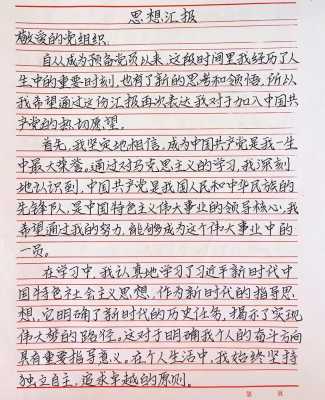 思想汇报
敬爱的党组织:
自从成为预备党员以来,这段时间里我经历了人
生中的重要时刻,也有了新的思考和领悟,所以
我希望通过这份汇报再次表达我对于加入中国共
产党的热切愿望。
首先,我坚定地相信,成为中国共产党是我一生
中最大荣誉。通过对马克思主义的学习,我深刻
地认识到,中国共产党是我国人民和中华民族的
先锋队,是中国特色主义伟大事业的领导核心,我
希望通过我的努力,能够成为这个伟大事业中的
一员。
在学习中,我认真地学习了习近平新时代中
国特色社会主义思想,作为新时代的指导思
想,它明确了新时代的历史任务,揭示了实现
伟大梦的路径。这对于明确我个人的奋斗方向
具有重要指导意义。在个人生活中,我始终坚持
独立自主,追求卓越的原则。
第 页